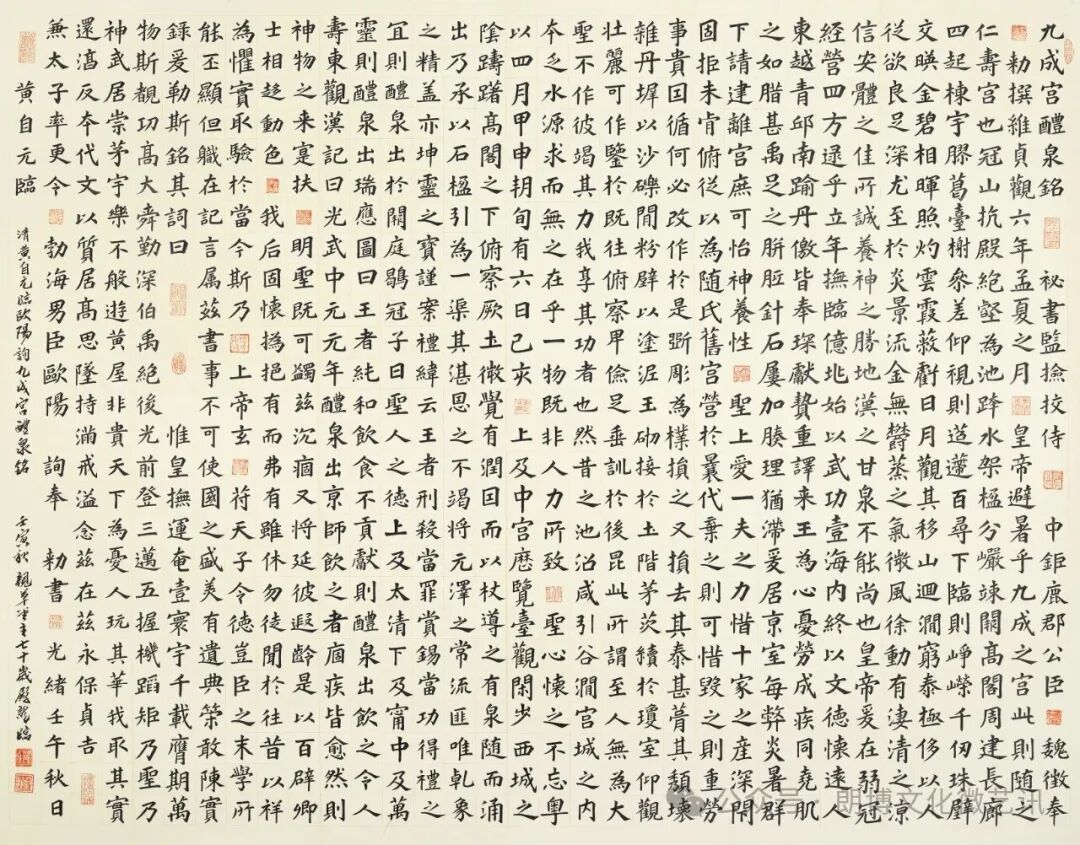 九成宮醴泉銘 秘書監撿挍侍 中鉅鹿郡公臣 魏徵奉
勑撰維貞觀六年孟夏之月 皇帝避暑乎九成之宮此則随之
仁壽宮也冠山抗殿絕壑為池跨水架楹分巖竦闕高閣周建長廊
四起棟宇膠葛臺榭參差仰視則迢遰百尋下臨則崢嶸千仞珠璧
交暎金碧相暉照灼雲霞蔽虧日月觀其移山迴澗窮泰極侈以人
從欲良足深尤至於炎景流金無欝蒸之氣微風徐動有淒清之凉
信安體之佳所誠養神之勝地漢之甘泉不能尚也皇帝爰在弱冠
經營四方逯乎立年撫臨億兆始以武功壹海內終以文德懷遠人
東越青邱南踰丹徼皆奉琛獻贄重譯来王為心憂勞成疾同堯肌
之如腊甚禹足之胼胝針石屢加腠理猶滯爰居京室每弊炎暑群
下請建離宮庶可怡神養性 聖上愛一夫之力惜十家之產深閇
固拒未肯俯從以為随氏舊宮營於曩代棄之則可惜毀之則重勞
事貴因循何必改作於是斲彫為樸損之又損去其泰甚葺其頹壞
雜丹墀以沙礫間粉壁以塗泥玉砌接於土階茅茨續於瓊室仰觀
壯麗可作鑒於既往俯察卑儉足垂訓於後昆此所謂至人無為大
聖不作彼竭其力我享其功者也然昔之池沼咸引谷澗宮城之內
本乏水源求而無之在乎一物既非人力所致 聖心懷之不忘粵
以四月甲申朔旬有六日己亥 上及中宮歷覽臺觀閑步西城之
陰躊躇高閣之下俯察厥土微覺有潤因而以杖導之有泉随而涌
出乃承以石楹引為一渠其湛思之不竭將元澤之常流匪唯乹象
之精盖亦坤靈之寶謹案禮緯云王者刑殺當罪賞錫當功得禮之
宜則醴泉出於闕庭鶡冠子曰聖人之德上及太清下及甯中及萬
靈則醴泉出瑞應圖曰王者純和飲食不貢獻則醴泉出飲之令人
壽東觀漢記曰光武中元元年醴泉出京師飲之者痼疾皆愈然則
神物之来寔扶 明聖既可蠲茲沉痼又將延彼遐齡是以百辟卿
士相趍動色 我后固懷撝挹有而弗有雖休勿徒聞於往昔以祥
為懼實取驗於當今斯乃 上帝玄 符天子令德豈臣之末學所
能丕顯但職在記言属茲書事不可使國之盛美有遺典策敢陳實
録爰勒斯銘其詞曰 惟皇撫運奄壹寰宇千載膺期萬
物斯覩功高大舜勤深伯禹絕後光前登三邁五握機蹈矩乃聖乃
神武居崇茅宇樂不般遊黃屋非貴天下為憂人玩其華我取其實
還淳反本代文以質居高思墜持滿戒溢念茲在茲永保貞吉
兼太子率更令 勃海男臣歐陽 詢奉 勑書 光緒壬午秋日
黃自元臨
清黃自元臨歐陽詢九成宮醴泉銘 壬寅秋 七十歲 臨
公众号·朗博文化微艺讯